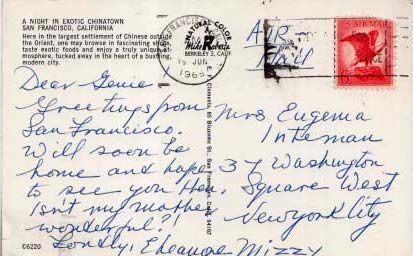 A NIGHT IN EXOTIC CHINATOWN
SAN FRANCISCO, CALIFORNIA
Here in the largest settlement of Chinese outside
the Orient, one may browse in fascinating shops,
taste exotic foods and enjoy a truly unique at-
mosphere, tucked away in the heart of a bustling,
modern city.
NATURAL COLOR
Mike Roberts
BERKELEY 2, CALIF.
15 JUN
1965
AIR
Mail
AIR MAIL
6
Dear Genie
Greetings from
San Francisco.
Will soon be
home and hope
to see you then.
Isn't my mother
wonderful?!
Fondly, Eleanore Mizzy
Mrs Eugenia
Inteman
37 Washington
Square West
New York City
San Francisco, Calif. 94107
C6220